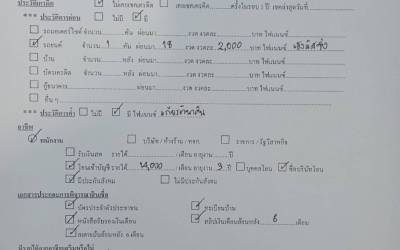 ประวัติเครดิต ☐ ไม่เคยเช็คเครดิต ☐ เคยเช็คเครดิต......ครั้งในรอบ 1 ปี เชคล่าสุดวันที่
*** ประวัติการผ่อน ☐ ไม่มี ☑ มี
☐ รถมอเตอร์ไซค์ จำนวน......คัน ผ่อนมา......งวด งวดละ......บาท ไฟแนนซ์
☑ รถยนต์ จำนวน 1 คัน ผ่อนมา 18 งวด งวดละ 2,000 บาท ไฟแนนซ์
☐ บ้าน จำนวน......หลัง ผ่อนมา......งวด งวดละ......บาท ไฟแนนซ์
☐ บัตรเครดิต จำนวน......หลัง ผ่อนมา......งวด งวดละ......บาท ไฟแนนซ์
☐ กู้ธนาคาร จำนวน......หลัง ผ่อนมา......งวด งวดละ......บาท ไฟแนนซ์
☐ อื่น ๆ
*** ประวัติการค้ำ ☐ ไม่มี ☑ มี ไฟแนนซ์ เกียรตินาคิน
อาชีพ
☑ พนักงาน ☐ บริษัท / ห้างร้าน / หจก ☐ ราชการ / รัฐวิสาหกิจ
☐ รับเงินสด รายได้......./เดือน อายุงาน......ปี
☑ โอนเข้าบัญชี รายได้ /เดือน อายุงาน 3 ปี ☐ บุคคลโอน ☑ ชื่อบริษัทโอน
☑ มีประกันสังคม ☐ ไม่มีประกันสังคม
เอกสารประกอบการพิจารณาสินเชื่อ
☑ บัตรประจำตัวประชาชน ☑ ทะเบียนบ้าน
☑ หนังสือรับรองเงินเดือน ☑ สลิปเงินเดือนย้อนหลัง 6 เดือน
☑ ย้อนหลัง 6 เดือน